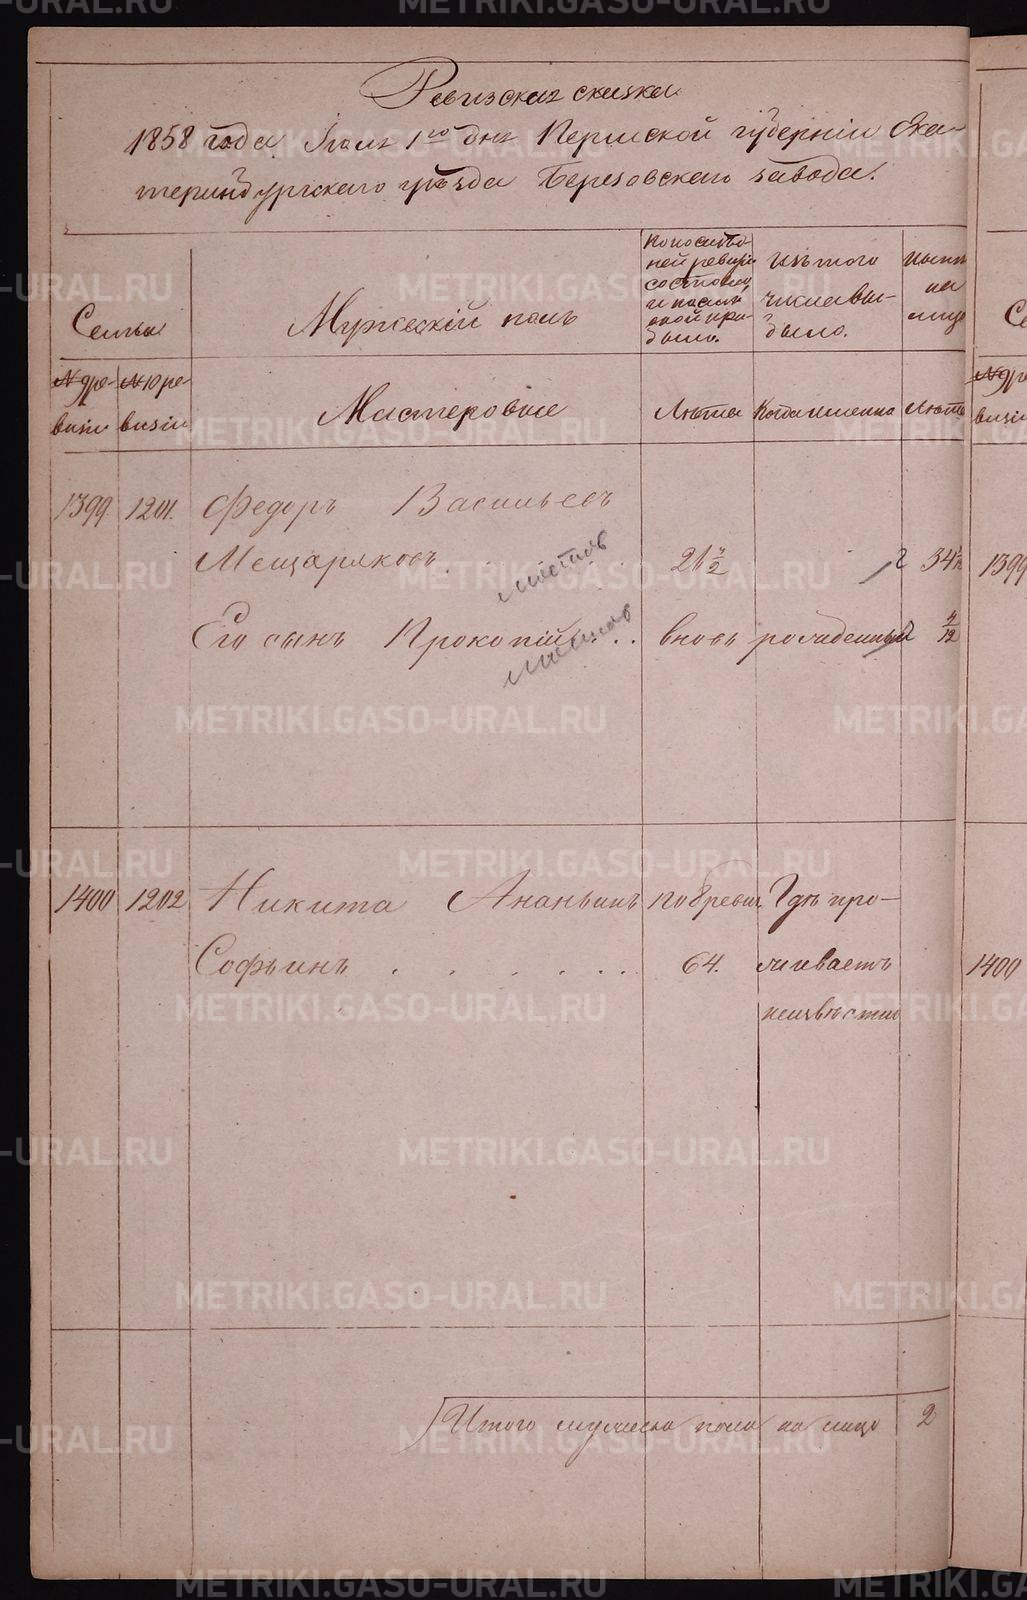 Ревизская сказка
1858 года Мая 1го дня Пермской губернiи Ека-
теринбургскаго уѣзда Березовскаго завода.
Семьи
Мужескiй полъ
По послѣд-
ней ревизiи
состояло
и послѣ
оной при-
было.
Изъ того
числа вы-
было.
Нынѣ
на
лицо
№ 9 ре-
визiи
№ 10 ре-
визiи
Мастеровые
Лѣта
Когда именно
Лѣта
1399 1201. Федоръ Васильевъ
Мещаряковъ
21 34 1399
Его сынъ Прокопiй . . . вновь рожденный 4/12
1400 1202 Никита Ананьинъ по 8 ревиз. Гдѣ про-
Софьинъ . . . . . . 64. живаетъ 1400
неизвѣстно
Итого мужеска пола на лицо 2
METRIKI.GASO-URAL.RU